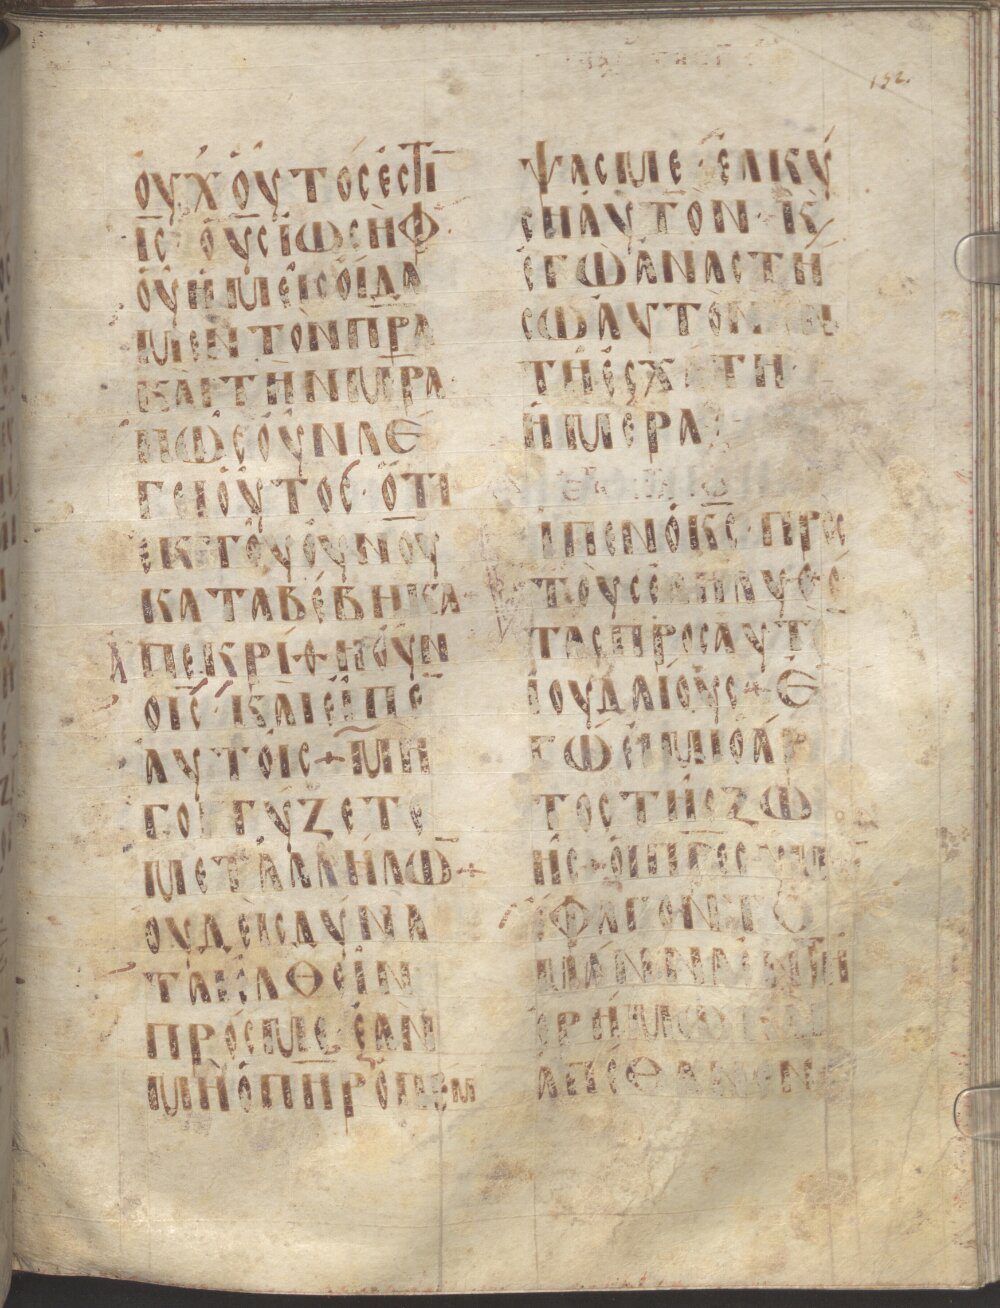 152.
ΟΥΧΟΥΤΟΣΕΣΤΙ
ΙΣ ΟΥΣΙΩΣΗΦ
ΟΥΗΜΕΙΣΟΙΔΑ
ΜΕΝΤΟΝΠΡΑ
ΚΑΙΤΗΝΜΕΡΑ
ΠΩΣΟΥΝΛΕ
ΓΕΙΟΥΤΟΣ·ΟΤΙ
ΕΚΤΟΥΟΥΝΟΥ
ΚΑΤΑΒΕΒΗΚΑ
ΑΠΕΚΡΙΘΗΟΥΝ
ΟΙΣ·ΚΑΙΕΙΠΕ
ΑΥΤΟΙΣ+ΜΗ
ΓΟΓΓΥΖΕΤΕ
ΜΕΤΑΛΛΗΛΩ+
ΟΥΔΕΙΣΔΥΝΑ
ΤΑΙΕΛΘΕΙΝ
ΠΡΟΣΜΕ·ΕΑΝ
ΜΗΟΠΗΡΟΠΕΜ
ΨΑΣΜΕ·ΕΛΚΥ
ΣΗΑΥΤΟΝ·Κ
ΕΓΩΑΝΑΣΤΗ
ΣΩΑΥΤΟΝ
ΤΗΕΣΧΑΤΗ
ΗΜΕΡΑ
ΙΠΕΝΟΚΣ·ΠΡΟΣ
ΤΟΥΣΕΛΗΛΥΘΟ
ΤΑΣΠΡΟΣΑΥΤ
ΙΟΥΔΑΙΟΥΣ+Ε
ΓΩΕΙΜΙΟΑΡ
ΤΟΣΤΗΣΖΩ
ΗΣ+ΟΙΠΡΕΣ
ΕΦΑΓΟΝΤΟ
ΜΑΝΝΑΕΝΤΗ
ΕΡΗΜΩ
ΑΠΕΘΑΝΟΝ